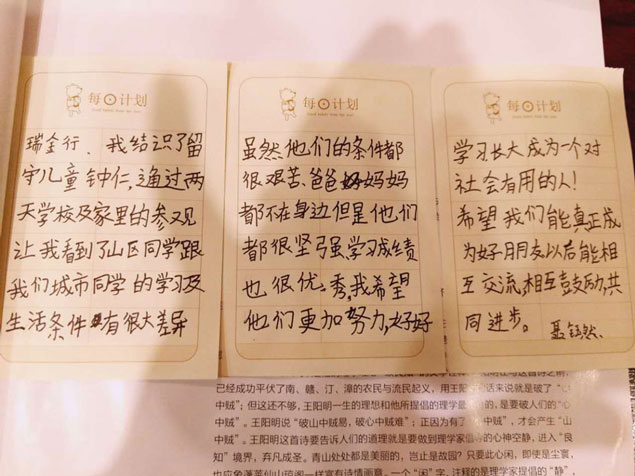 每日计划
瑞金行、我结识了留
守儿童钟仁,通过两
天学校及家里的参观
让我看到了山区同学跟
我们城市同学的学习及
生活条件有很大差异
每日计划
虽然他们的条件都
很艰苦、爸爸妈妈
都不在身边但是他们
都很坚强,学习成绩
也很优秀,我希望
他们更加努力,好好
每日计划
学习长大成为一个对
社会有用的人!
希望我们能真正成
为好朋友以后能相
互交流,相互鼓励,共
同进步。
已经成功平伏了南、赣、汀、漳的农民与流民起义,用王
话来说就是破了
中贼”;但这还不够,王阳明一生的理想和他所提倡的理学
的,是要破人们的“心
中贼”。王阳明说“破山中贼易,破心中贼难”;正因为有了
,才会产生“山
中贼”。王阳明这首诗要告诉人们的道理就是要做到理学家倡
的心神空静,进入“良
知”境界,弃凡成圣。青山处处都是美丽的,岂止是故园?只要此心闲,即使是尘寰,